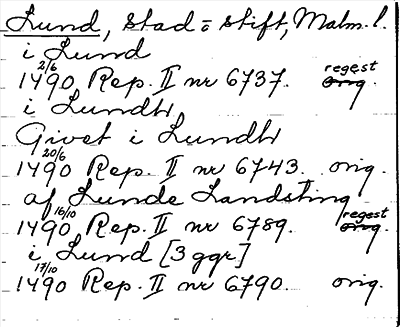 Lund, stad o stift, Malm. l.
i Lund
1490 2/6 Rep. II nr 6737. regest orig.
i Lundh
Givet i Lundh
1490 20/6 Rep. II nr 6743. orig.
af Lunde Landsting
1490 16/10 Rep. II nr 6789. regest orig.
i Lund [3 ggr]
1490 17/10 Rep. II nr 6790. orig.